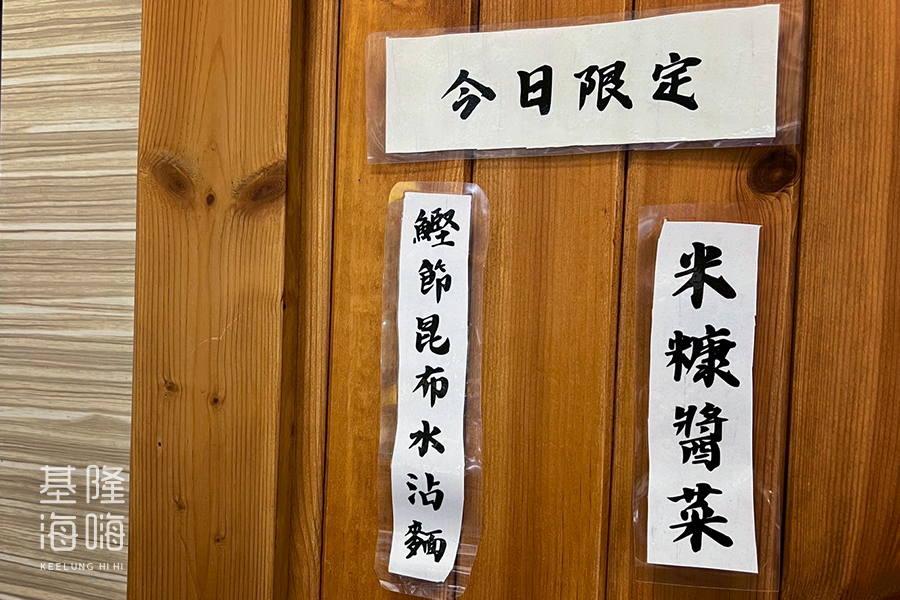 今日限定
米糠醬菜
鰹節昆布水沾麵
基隆
海嗨
KEELUNG HI HI